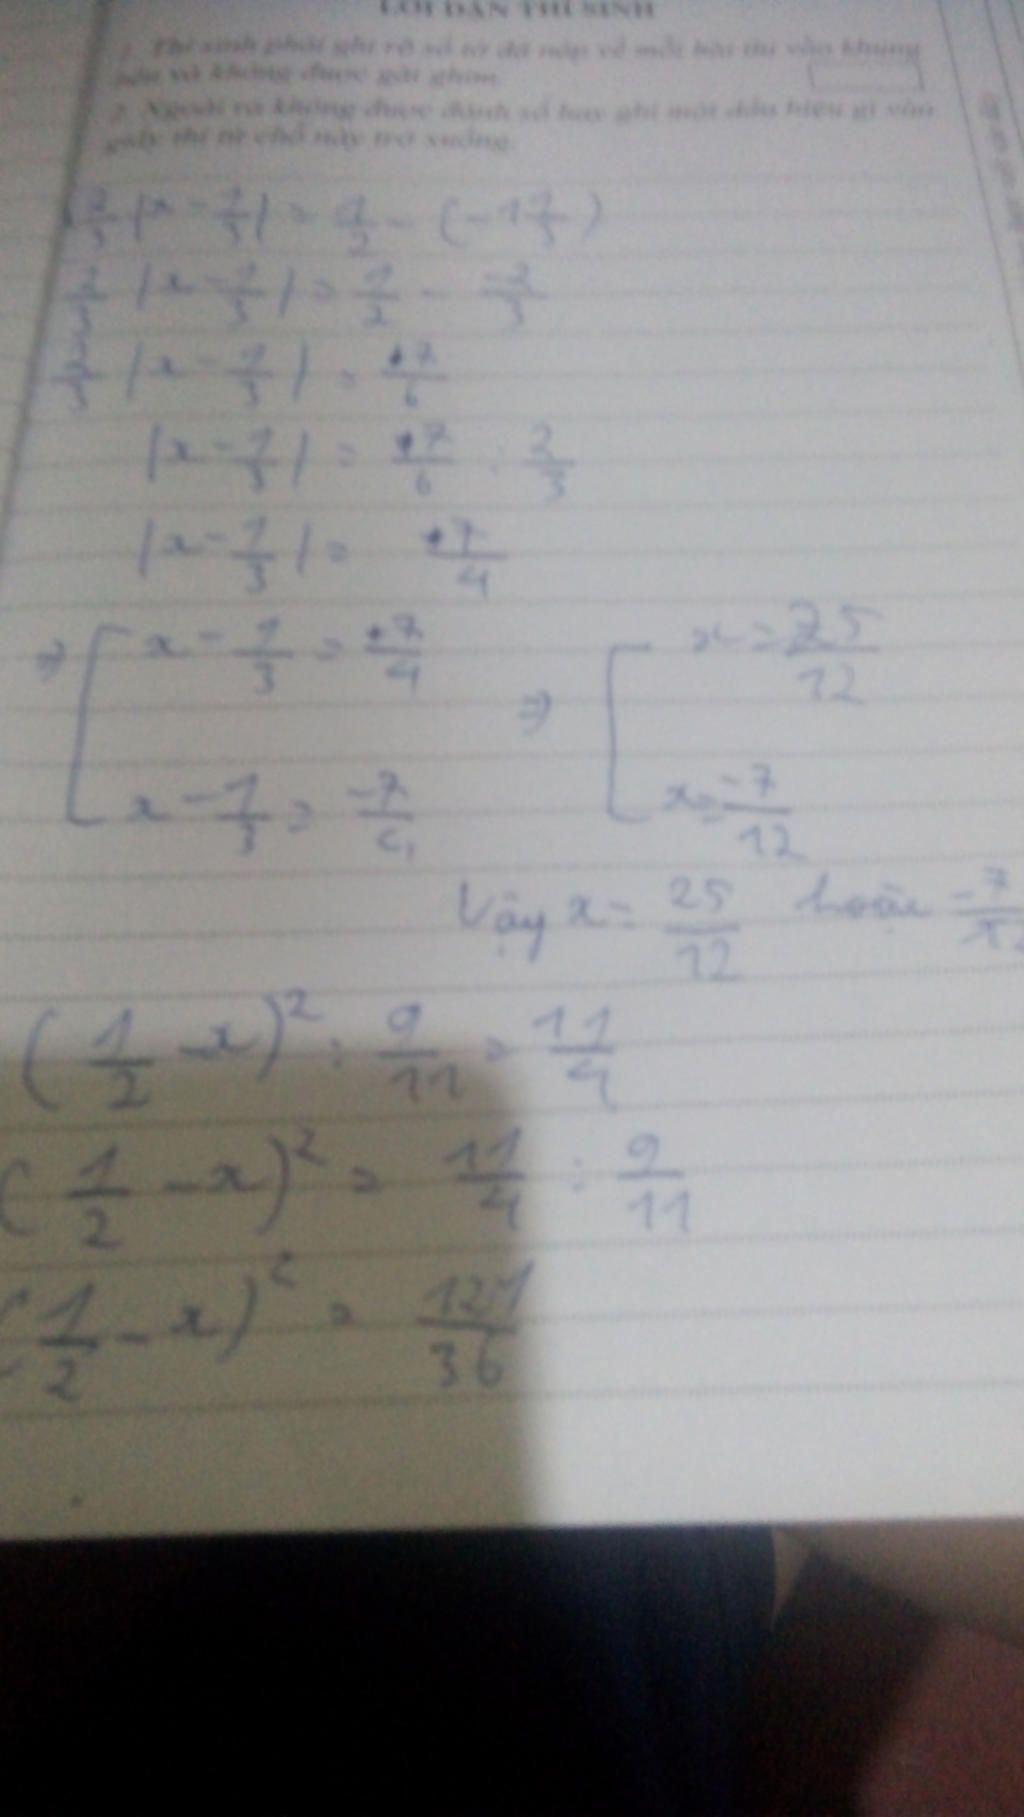 LỜI DẶN THÍ SINH
1. Thí sinh phải ghi rõ số tờ đã nộp về mỗi bài thi vào khung
bên và không được gài ghim.
2. Ngoài ra không được đánh số hay ghi một dấu hiệu gì vào
giấy thi từ chỗ này trở xuống.
2/3 |x - 1/3| = 1/2 -
2/3 |x - 1/3| = 1/2 - -2/3
2/3 |x - 1/3| = 7/6
|x - 1/3| = 7/6 : 2/3
|x - 1/3| = 7/4
⇒ [ x - 1/3 = 7/4 ⇒ [ x = 25/12
x - 1/3 = -7/4 x = -7/12
Vậy x = 25/12 hoặc -7/12
(1/2 - x)² : 9/11 = 11/4
(1/2 - x)² = 11/4 : 9/11
(1/2 - x)² = 121/36